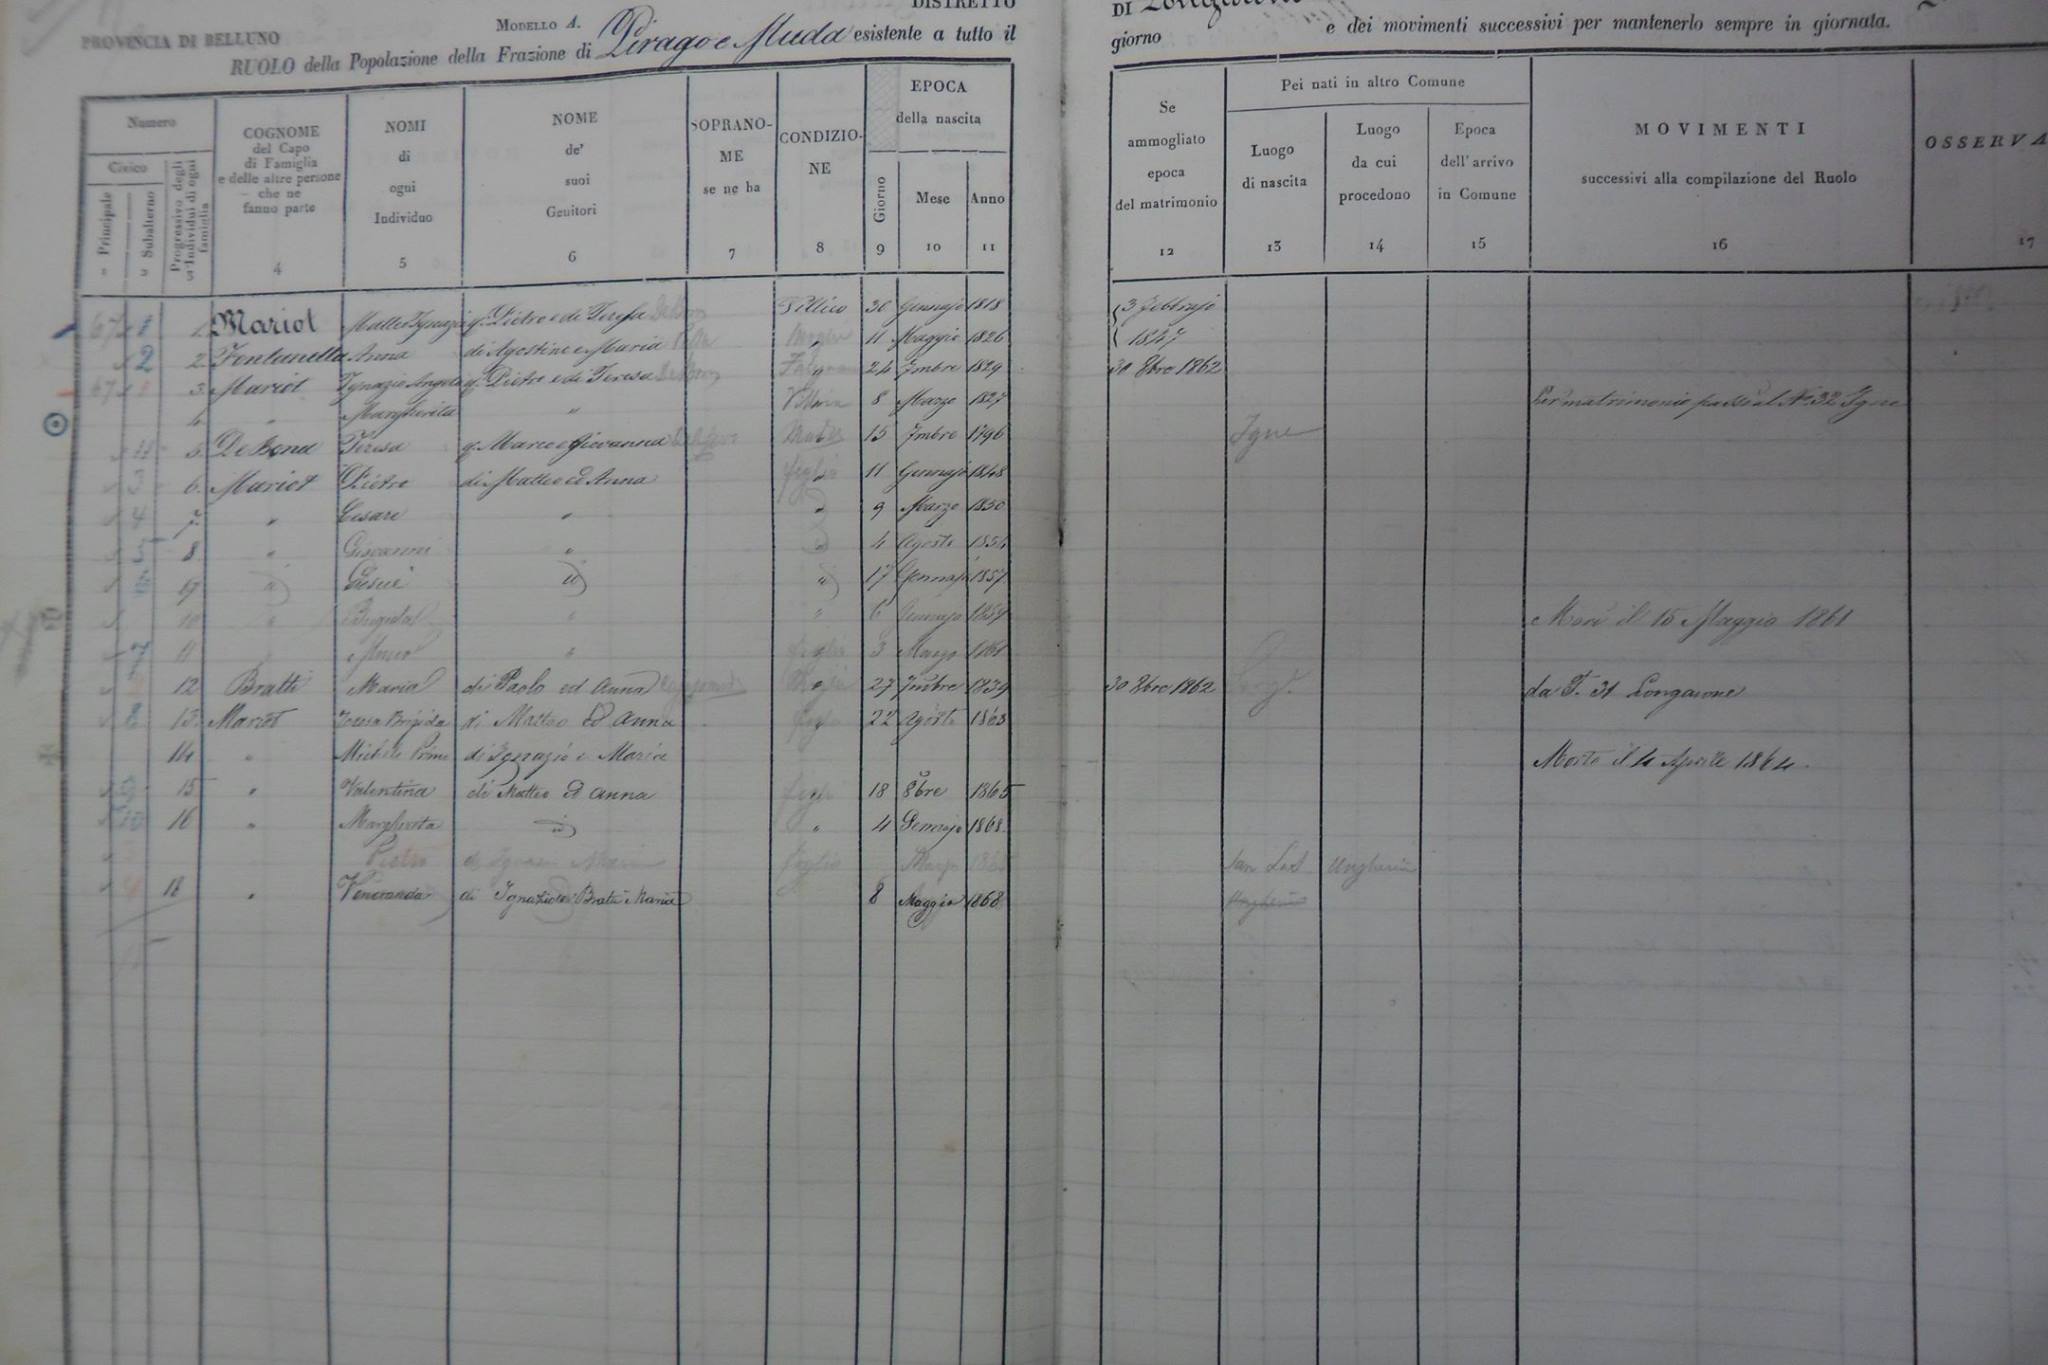 PROVINCIA DI BELLUNO
MODELLO A.
DISTRETTO
DI Longarone
RUOLO della Popolazione della Frazione di Pirago e Muda esistente a tutto il
giorno e dei movimenti successivi per mantenerlo sempre in giornata.
Numero
Civico
Principale
Subalterno 2
Progressivo degli Individui di ogni famiglia 3
COGNOME del Capo di Famiglia e delle altre persone che ne fanno parte 4
NOMI di ogni Individuo 5
NOME de' suoi Genitori 6
SOPRANO-ME se ne ha 7
CONDIZIO-NE 8
EPOCA della nascita
Giorno 9
Mese 10
Anno 11
Se ammogliato epoca del matrimonio 12
Pei nati in altro Comune
Luogo di nascita 13
Luogo da cui procedono 14
Epoca dell' arrivo in Comune 15
MOVIMENTI successivi alla compilazione del Ruolo 16
OSSERVA 17
67 1 1. Mariot Matteo Ignazio q. Pietro e di Teresa De Bona Villico 30 Gennajo 1818 3 Febbrajo 1847
2 2. Fontanella Anna di Agostino e Maria Moglie 11 Maggio 1826
67 3. Mariot Ignazio Angelo q. Pietro e di Teresa De Bona 24 7mbre 1829 30 Xbre 1862
4 " Margherita " Villica 8 Marzo 1827 Per matrimonio passò al No. 32 Igne
5. De Bona Teresa q. Marco e Giovanna Madre 15 7mbre 1796 Igne
3 6. Mariot Pietro di Matteo ed Anna figlio 11 Gennajo 1848
4 7. " Cesare " " 9 Marzo 1850
5 8 " Giovanni " " 4 Agosto 1854
9 " " " 17 Gennajo 1857
10 " Brigida " " 6 Gennajo 1859 Morì il 15 Maggio 1861
7 11 " Marco " figlio 3 Marzo 1861
12 Bratti Maria di Paolo ed Anna Moglie 27 1839 30 Xbre 1862 Long. da F. 31 Longarone
13. Mariot Teresa Brigida di Matteo ed Anna figlia 22 Agosto 1863
14 " Michele Primo di Ignazio e Maria Morto il 4 Aprile 1864.
15 " Valentina di Matteo ed Anna figlia 18 8bre 1865
10 16 " Margherita " " 4 Gennajo 1868
Pietro di Ignazio Maria figlio Marzo Ungheria
18 " Veneranda di Ignazio e Bratti Maria 8 Maggio 1868 Ungheria